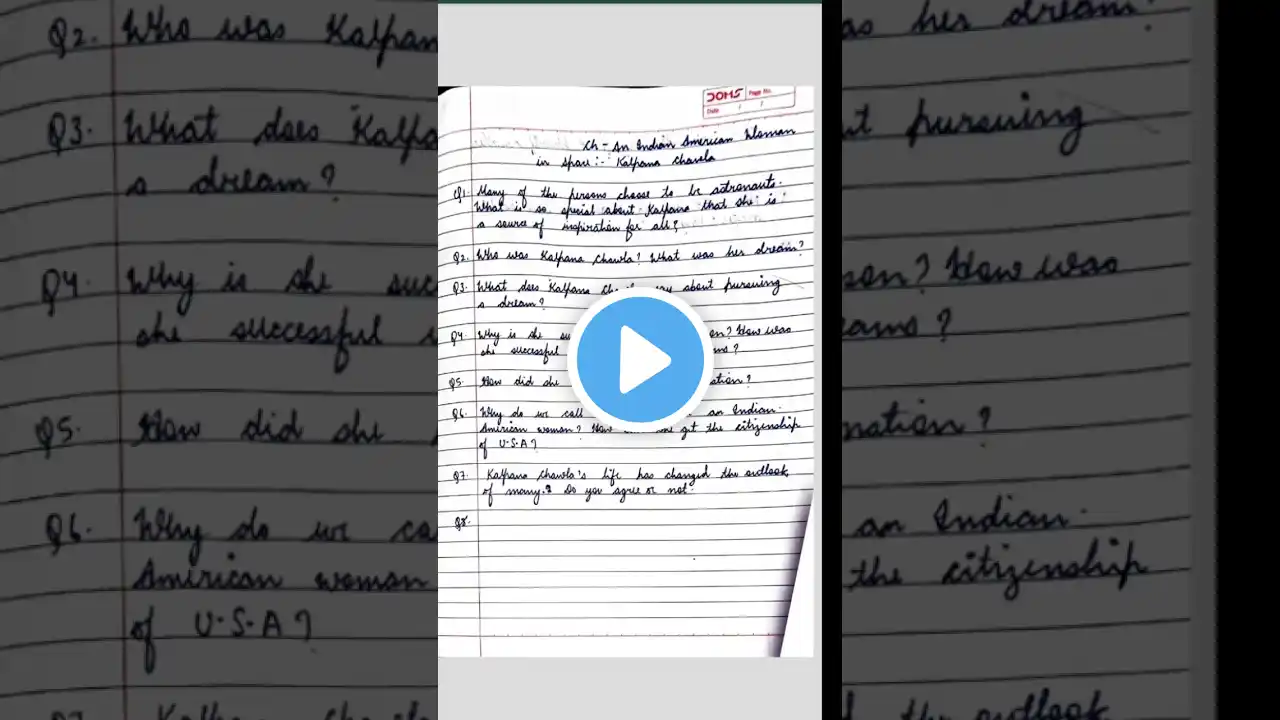 DOMS Page No.
Date / /
Ch - An Indian American Woman
in Space :- Kalpana Chawla
Q1. Many of the persons choose to be astronauts.
What is so special about Kalpana that she is
a source of inspiration for all?
Q2. Who was Kalpana Chawla? What was her dream?
Q3. What does Kalpana about pursuing
a dream?
Q4. Why is she How was
she successful
Q5. How did she
Q6. Why do we call an Indian
American woman? How get the citizenship
of U.S.A?
Q7. Kalpana Chawla's life has changed the outlook
of many. Do you agree or not.
Q8.